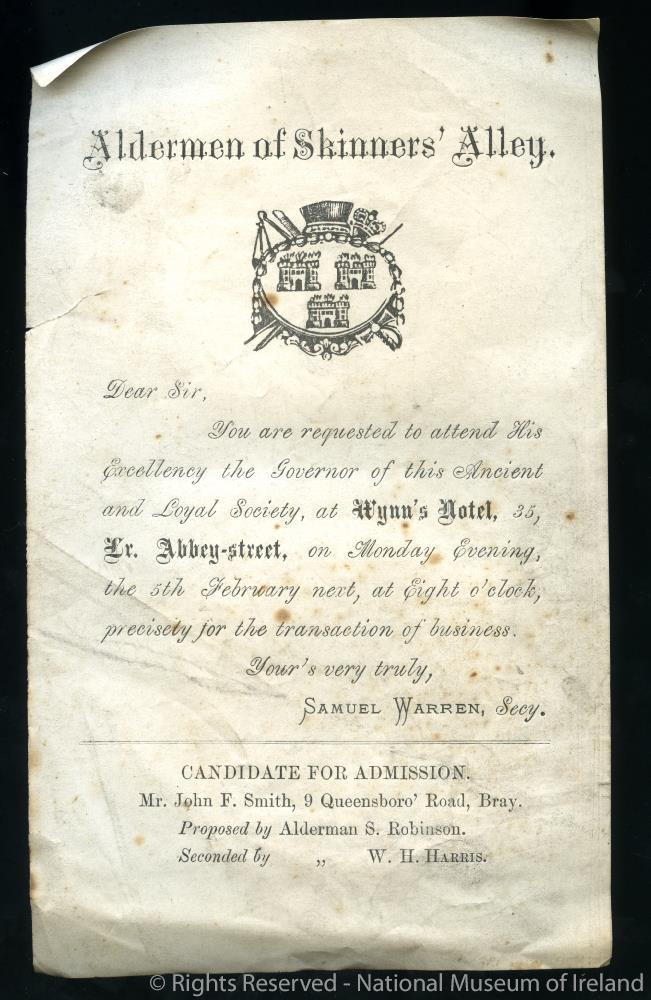 Aldermen of Skinners' Alley.
Dear Sir,
You are requested to attend His
Excellency the Governor of this Ancient
and Loyal Society, at Wynn's Hotel, 35,
Lr. Abbey-street, on Monday Evening,
the 5th February next, at Eight o'clock,
precisely for the transaction of business.
Your's very truly,
SAMUEL WARREN, Secy.
CANDIDATE FOR ADMISSION.
Mr. John F. Smith, 9 Queensboro' Road, Bray.
Proposed by Alderman S. Robinson.
Seconded by „ W. H. HARRIS.
© Rights Reserved - National Museum of Ireland